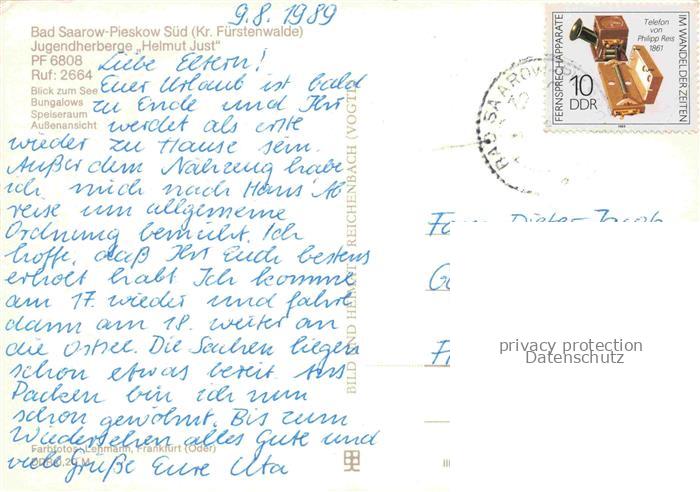 9.8.1989
Bad Saarow-Pieskow Süd (Kr. Fürstenwalde)
Jugendherberge „Helmut Just"
PF 6808
Ruf: 2664
Blick zum See
Bungalows
Speiseraum
Außenansicht
Liebe Eltern!
Euer Urlaub ist bald
zu Ende und Ihr
werdet als erste
wieder zu Hause sein.
Außer dem Nähzeug habe
ich mich nach Hans' Ab
reise um allgemeine
Ordnung bemüht. Ich
hoffe, daß Ihr Euch bestens
erholt habt. Ich komme
am 17. wieder und fahre
dann am 18. weiter an
die Ostsee. Die Sachen liegen
schon etwas bereit. Ans
Packen bin ich nun
schon gewöhnt. Bis zum
Wiedersehen alles Gute und
viele Grüße Eure Uta
Farbfotos: Lehmann, Frankfurt (Oder)
BILD UND HEIMAT REICHENBACH (VOGTL
BAD SAAROW
FERNSPRECHAPPARATE
IM WANDEL DER ZEITEN
Telefon
von
Philipp Reis
1861
10
DDR
Dieter Jacob
privacy protection
Datenschutz